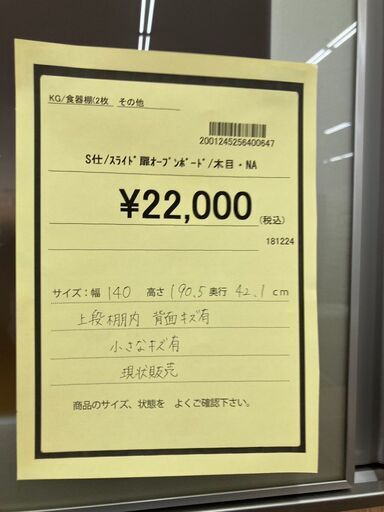 KG/食器棚(2枚 その他
2001245256400647
S仕/ｽﾗｲﾄﾞ扉ｵｰﾌﾟﾝﾎﾞｰﾄﾞ/木目・NA
¥22,000(税込)
181224
サイズ:幅 140 高さ 190.5 奥行 42.1 cm
上段棚内 背面キズ有
小さなキズ有
現状販売
商品のサイズ、状態を よくご確認下さい。